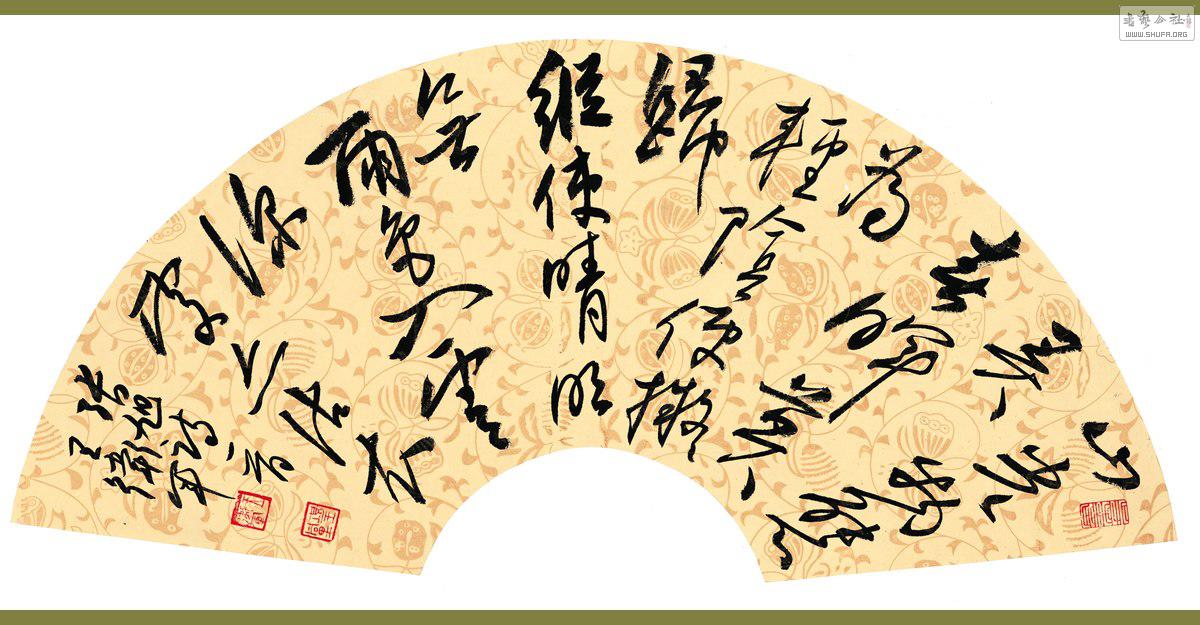 山光物態弄春暉
莫為輕陰便擬歸
縱使晴明
無雨色入雲
深處亦沾衣
張旭詩
书艺公社
WWW.SHUFA.ORG